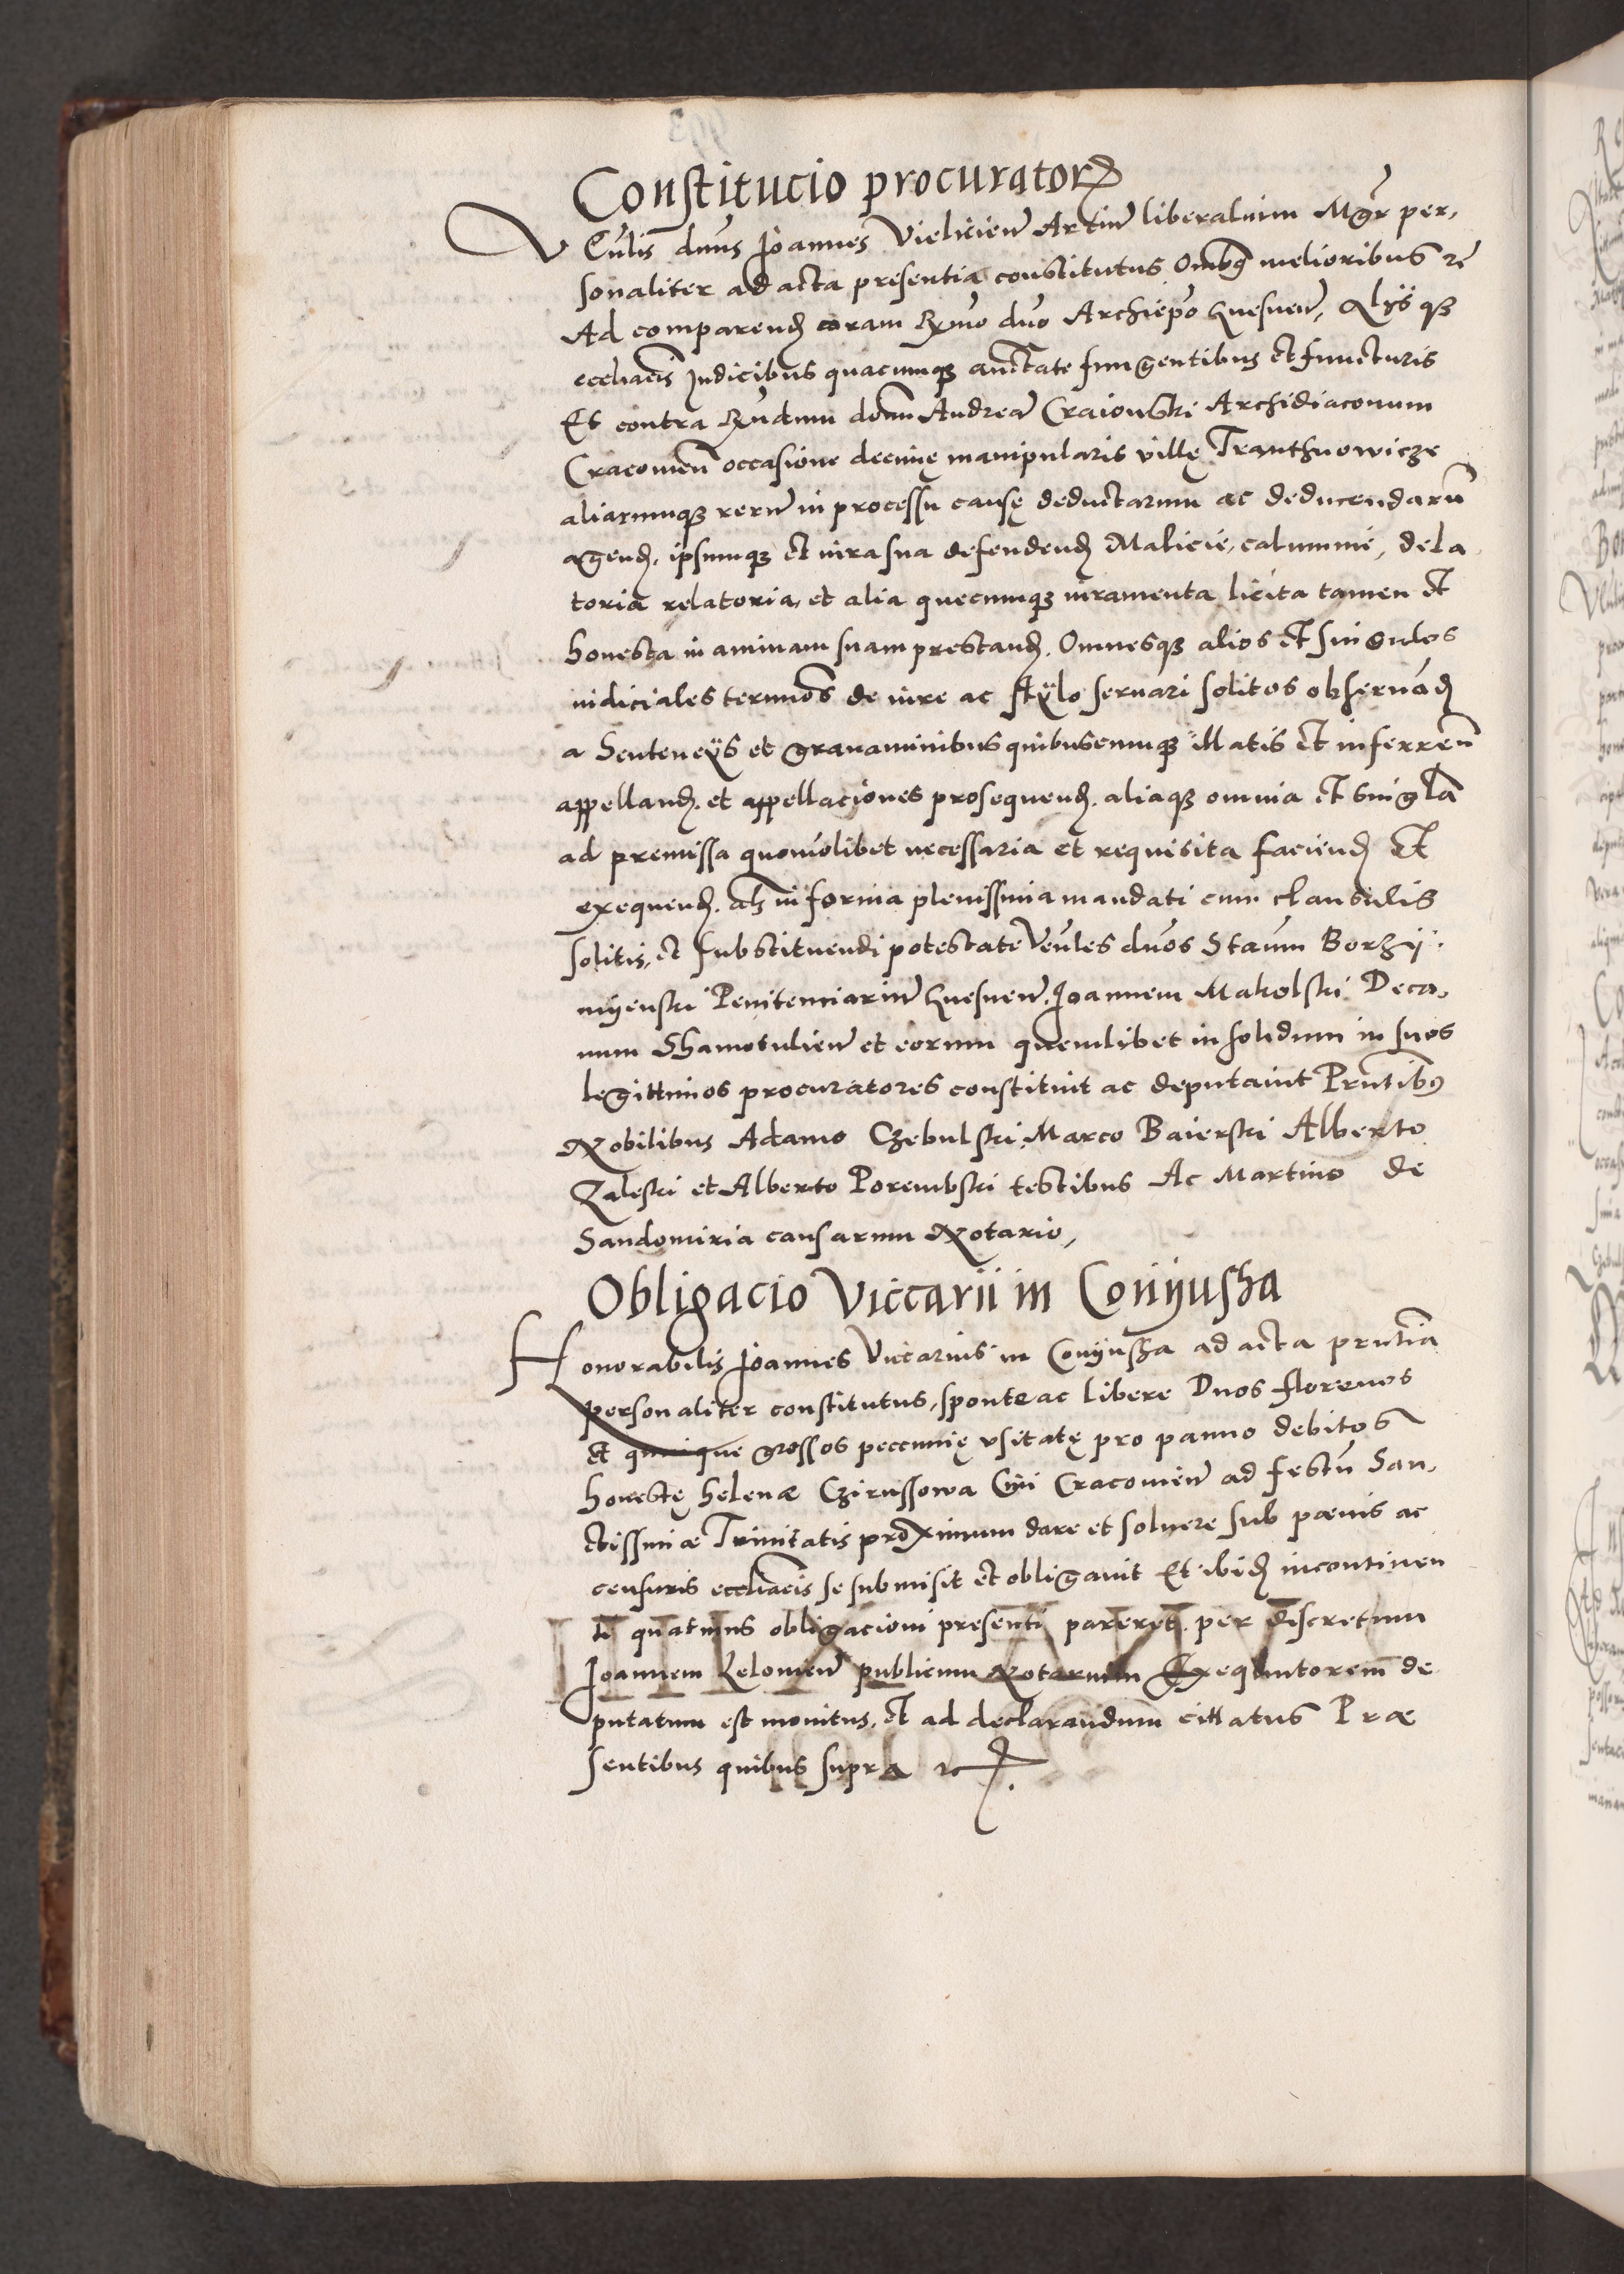 Constitucio procuratorꝝ
Vēnlis dnūs Joannes Vielicien̄ Artiū liberalium Mgr̄ per,
sonaliter ad acta presentia constitutus Omībꝯ melioribus rc̄
Ad comparend̄ coram Rx̄mo dn̄o Archiepō Gnesnen̄, Alÿs qꝫ
eccliacīs Judicibus quacumqꝫ auctate fungentibus et functuris
Et contra Rn̄dum dōm Andreā Craiowski Archidiaconum
Cracouien̄ occasione decimę manipularis villę Tranthnowicze
aliarumqꝫ rerū in processu causę deductarum ac deducendarū
agend̄. ipsumqꝫ et iura sua defendend̄ Malicie, calumnie, dela
toria relatoria, et alia quecumqꝫ iuramenta licita tamen et
honesta in animam suam prestand̄. Omnesqꝫ alios et singulos
iudiciales termnos̄ de iure ac stÿlo seruari solitos obseruād̄
a Sentencÿs et grauaminibus quibuscumqꝫ illatis et inferren̄
appelland̄. et appellaciones prosequend̄. aliaqꝫ omnia et singl̄a
ad premissa quomōlibet necessaria et requisita faciend̄ Et
exequend̄. als̄ in forma plenissima mandati cum clausulis
solitis, et substituendi potestate Vēnles dnōs Staūm Borzÿ
mÿenski Penitenciariū Gnesnen̄. Joannem Makolski Deca,
num Shamotulien̄ et eorum quemlibet in solidum in suos
legittimos procuratores constituit ac deputauit Prn̄tibꝯ
Nobilibus Adamo Czebulski, Marco Baierski Alberto
Zaleski et Alberto Porembski testibus Ac Martino de
Sandomiria causarum Notario,
Obligacio Viccarii in Conÿusha
Honorabilis Joannes Viccarius in Conÿusha ad acta prn̄tia
personaliter constitutus, sponte ac libere Duos florenos
Et quinque grossos peccunię vsitatę pro panno debitos
honestę Helenæ Czirussowa Ciui Cracouien̄ ad festū San,
ctissimæ Trinitatis proximum dare et soluere sub pœnis ac
censuris eccliacīs se submisit et obligauit Et ibid̄ incontinen
ti quatinus obligacioni presenti pareret. per discretum
Joannem Lelouien̄ publicum Notarium Exequutorem de
putatum est monitus. et ad declarandum cittatus Præ
sentibus quibus supra rc